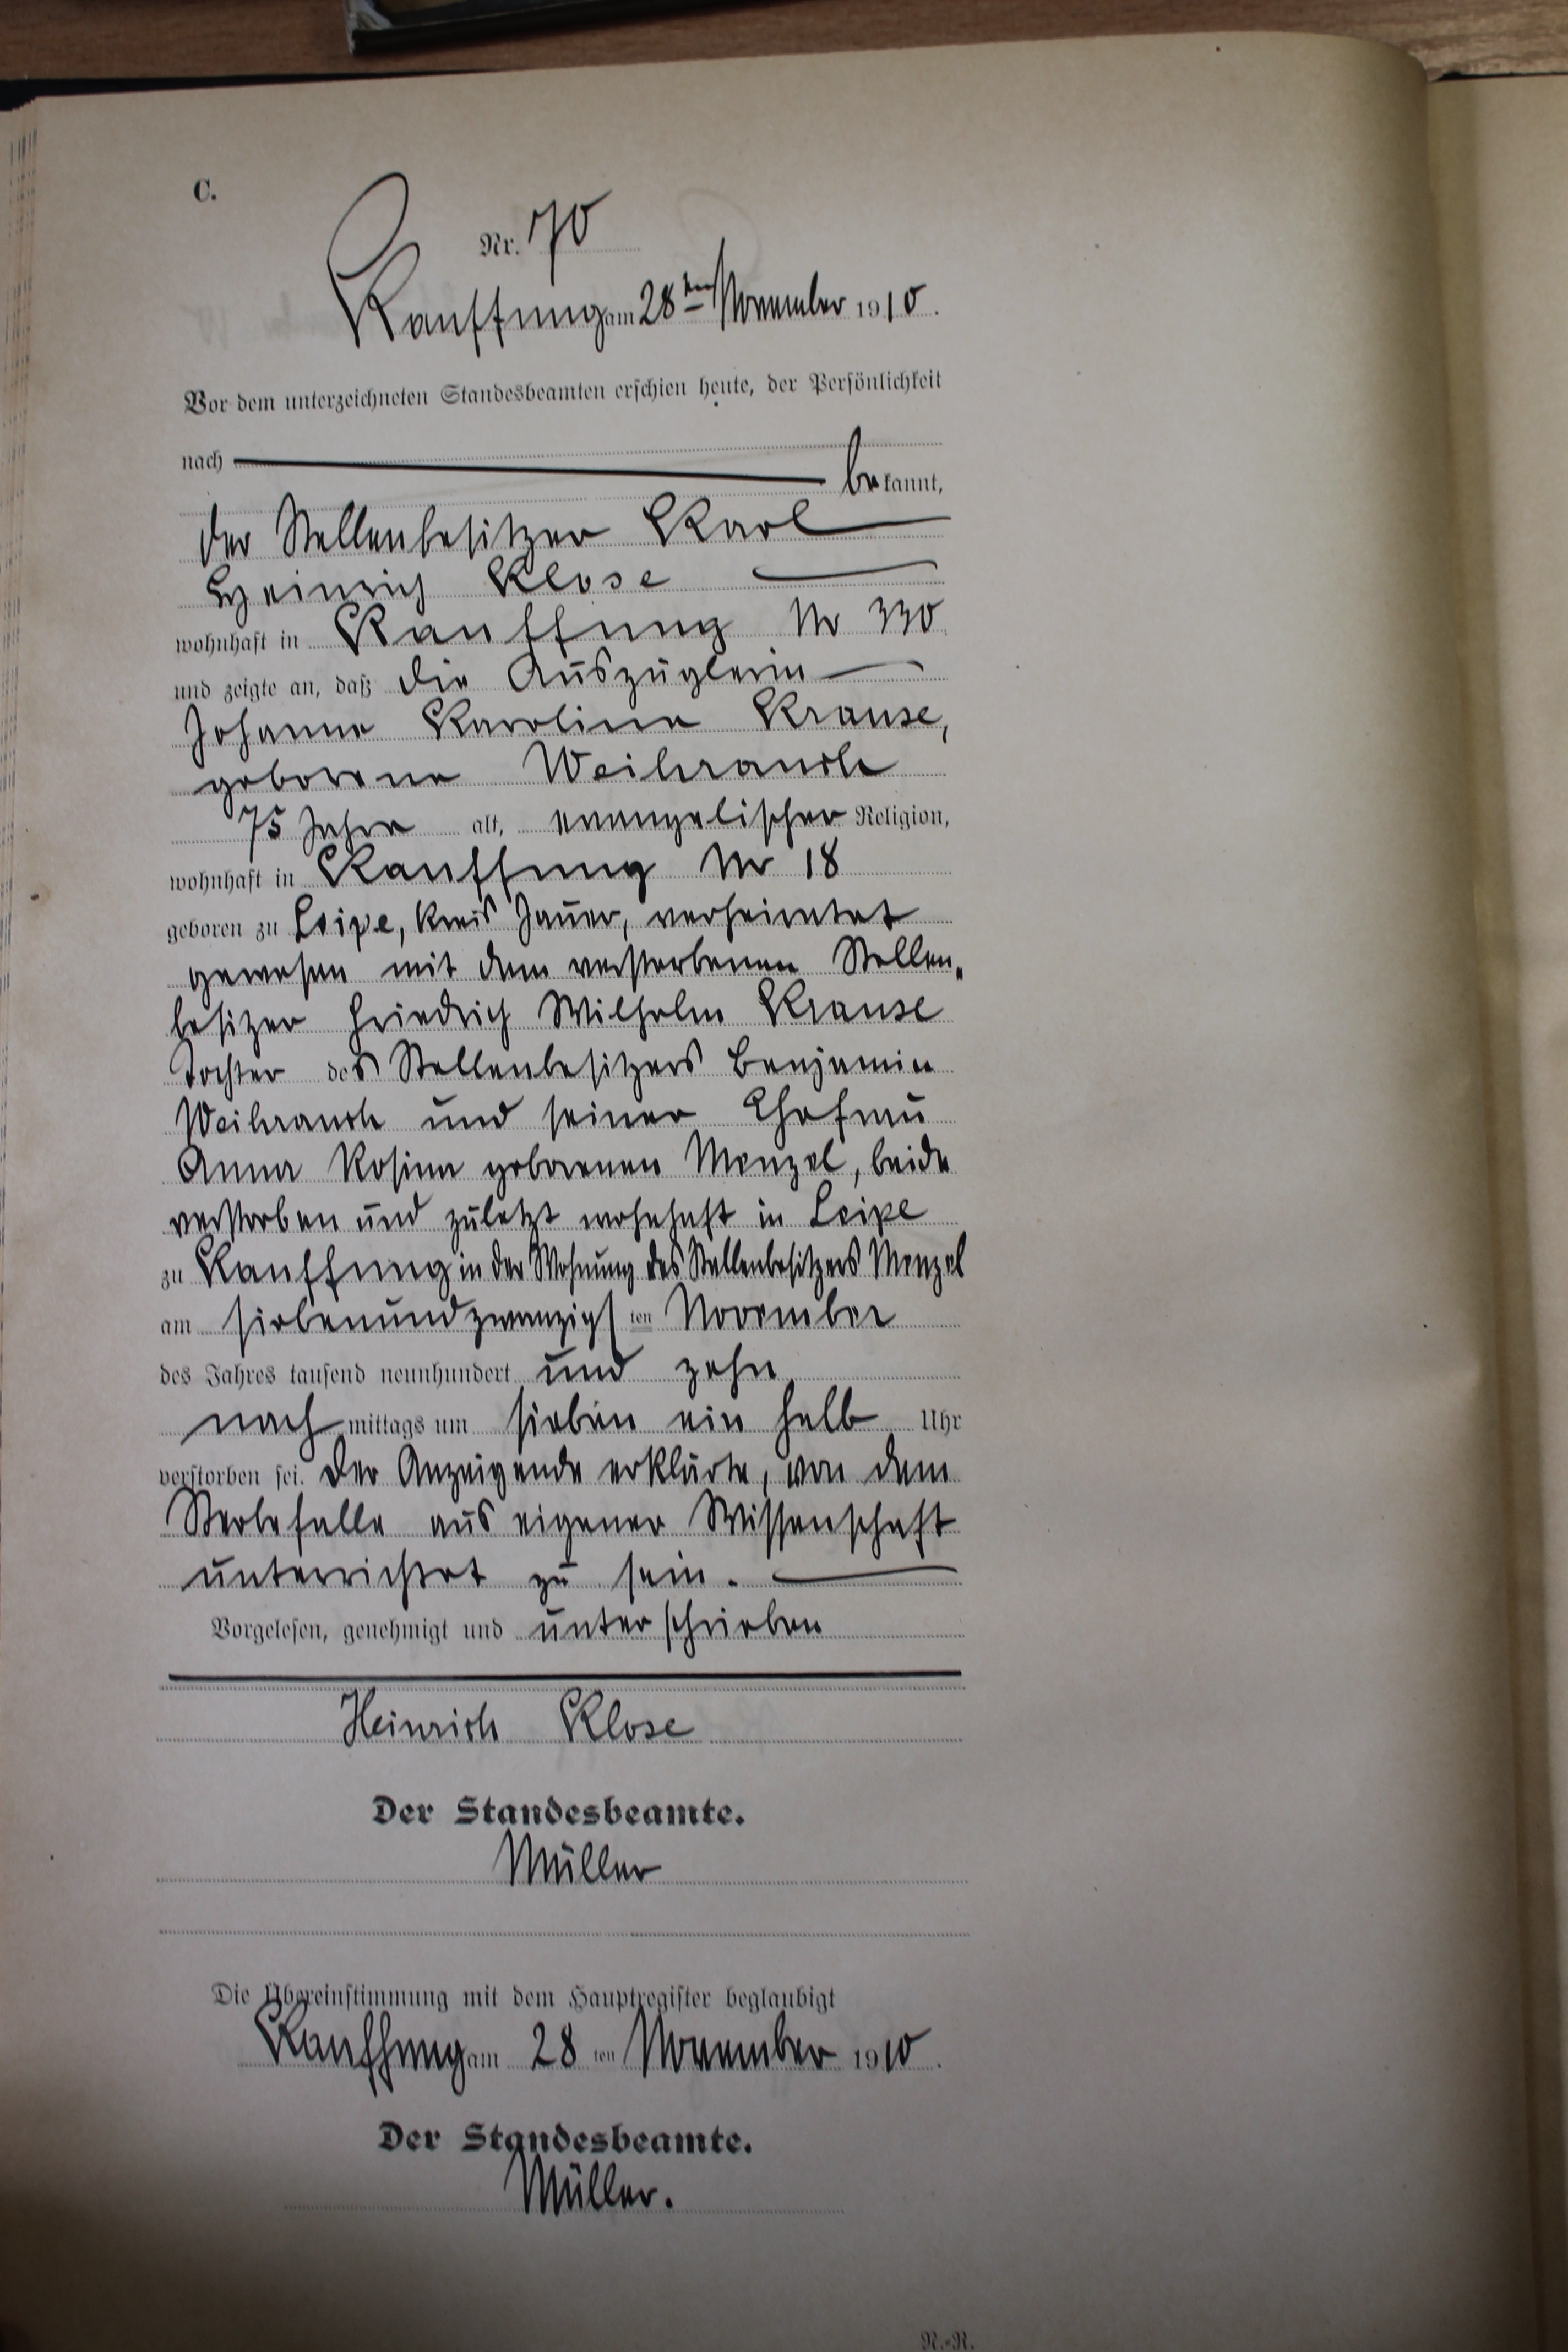 C.
Nr. 70
Kauffung am 28ten November 1910.
Vor dem unterzeichneten Standesbeamten erschien heute, der Persönlichkeit
nach bekannt,
der Stellenbesitzer Karl
Heinrich Klose
wohnhaft in Kauffung Nr 330
und zeigte an, daß die Auszüglerin
Johanne Karoline Krause,
geborene Weihrauch
75 Jahre alt, evangelischer Religion,
wohnhaft in Kauffung Nr 18
geboren zu Leipe, Kreis Jauer, verheiratet
gewesen mit dem verstorbenen Stellen„
besizer Friedrich Wilhelm Krause
Tochter des Stellenbesitzers Benjamin
Weihrauch und seiner Ehefrau
Anna Rosina geborenen Menzel, beide
verstorben und zuletzt wohnhaft in Leipe
zu Kauffung in der Wohnung des Stellenbesitzers Menzel
am siebenundzwanzigsten November
des Jahres tausend neunhundert und zehn
nachmittags um sieben ein halb Uhr
verstorben sei. Der Anzeigende erklärte, von dem
Sterbefalle aus eigener Wissenschaft
unterrichtet zu sein.
Vorgelesen, genehmigt und unterschrieben
Heinrich Klose
Der Standesbeamte.
Müller
Die Übereinstimmung mit dem Hauptregister beglaubigt
Kauffung am 28ten November 1910.
Der Standesbeamte.
Müller.
R.-R.